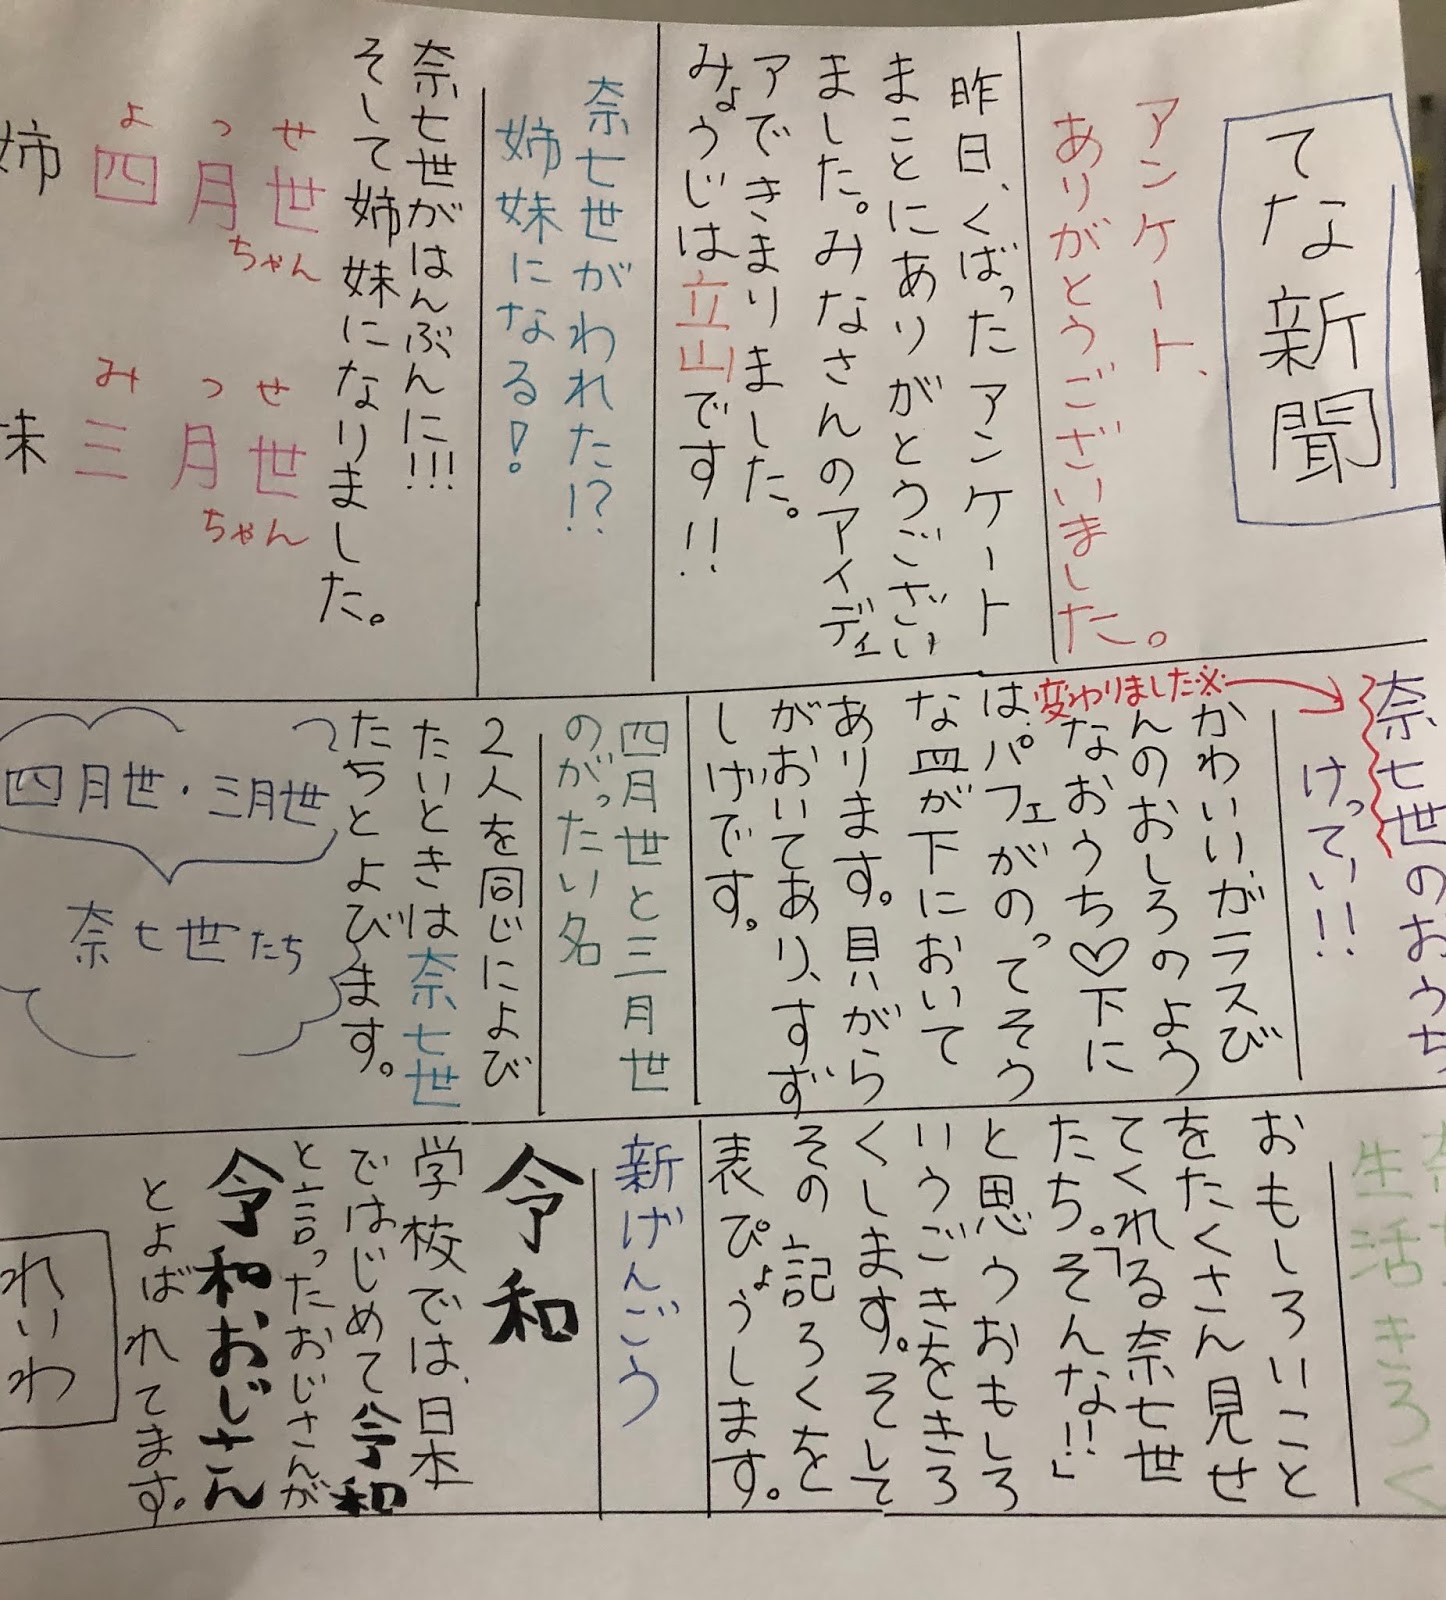 てな新聞
アンケート、
ありがとうございました。
昨日、くばったアンケート
まことにありがとうござい
ました。みなさんのアイディ
アできまりました。
みょうじは立山です!!
奈七世がわれた!?
姉妹になる!
奈七世がはんぶんに!!!
そして姉妹になりました。
せ
世
ちゃん
っ
月
よ
四
姉
せ
世
ちゃん
っ
月
み
三
妹
奈七世のおうち
けってい!!
変わりました※
かわいいガラスび
んのおしろのよう
なおうち♡下に
は、パフェがのってそう
な皿が下において
あります。貝がら
がおいてあり、すず
しげです。
四月世と三月世
のがったい名
2人を同じによび
たいときは奈七世
たちとよびます。
四月世・三月世
奈七世たち
生活きろく
おもしろいこと
をたくさん見せ
てくれる奈七世
たち。「そんな!!」
と思うおもしろ
いうごきをきろ
くします。そして
その記ろくを
表ぴょうします。
新げんごう
令和
学校では、日本
ではじめて令和
と言ったおじさんが
令和おじさん
とよばれてます。
れいわ